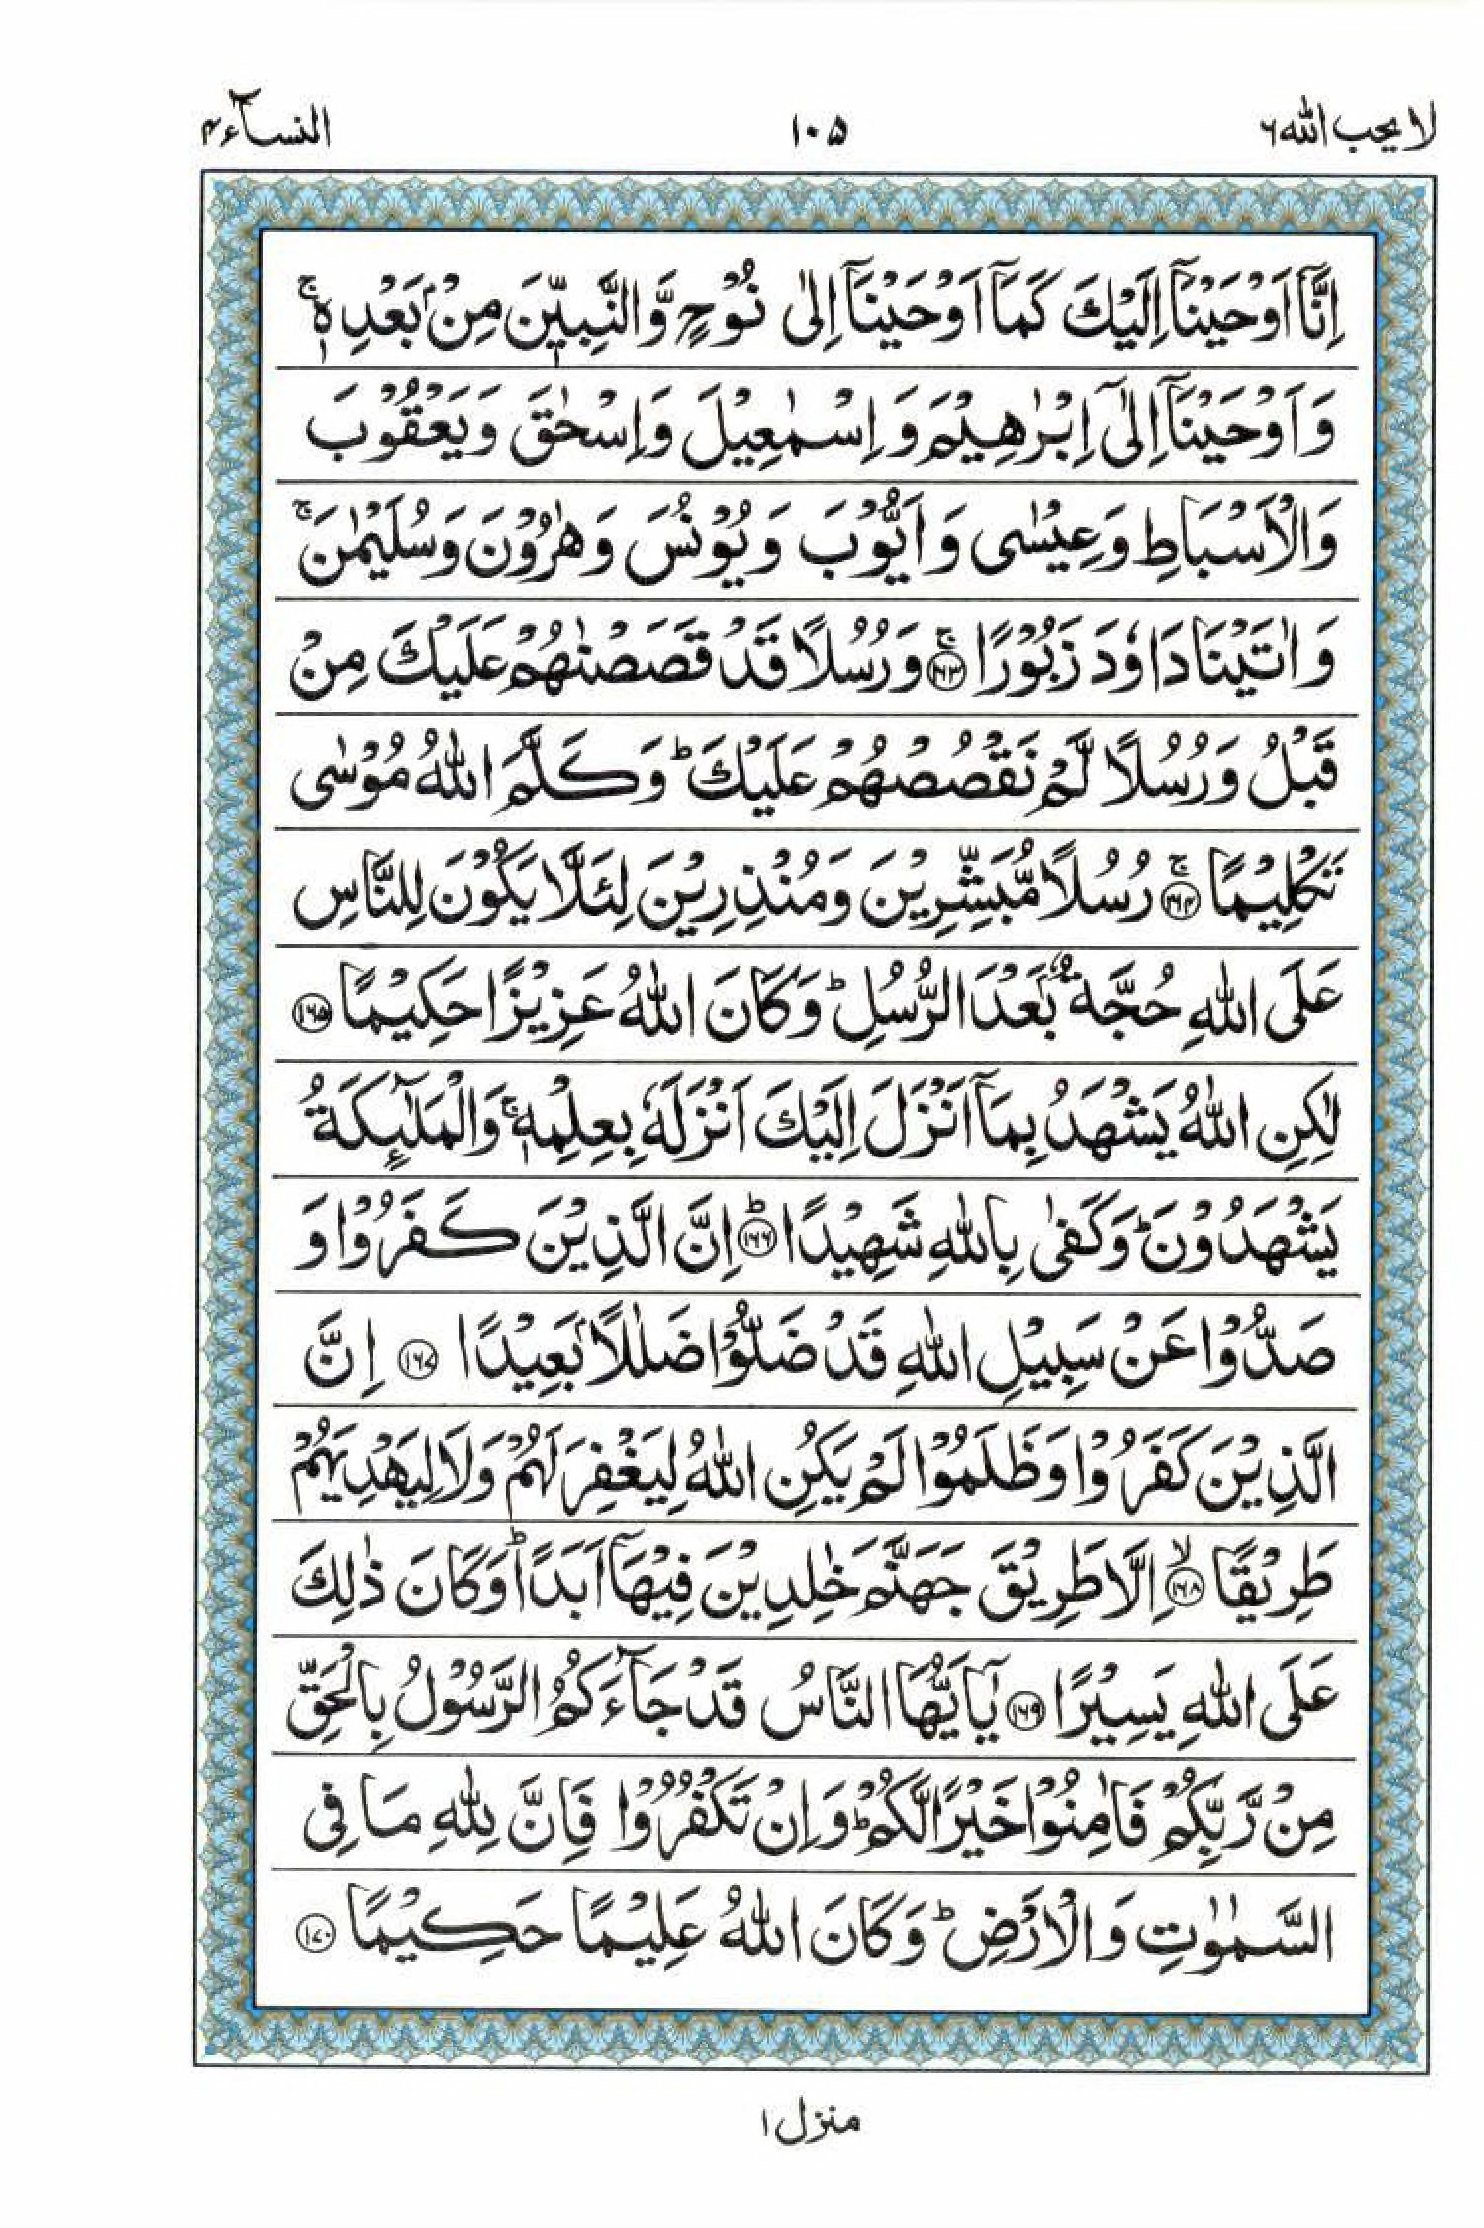 لا یحب الله ۶
۱۰۵
النسآء ۴
اِنَّاۤ اَوْحَیْنَاۤ اِلَیْكَ كَمَاۤ اَوْحَیْنَاۤ اِلٰی نُوْحٍ وَّالنَّبِیّٖنَ مِنْۢ بَعْدِهٖ ۚ
وَ اَوْحَیْنَاۤ اِلٰۤی اِبْرٰهِیْمَ وَ اِسْمٰعِیْلَ وَ اِسْحٰقَ وَ یَعْقُوْبَ
وَالْاَسْبَاطِ وَ عِیْسٰی وَ اَیُّوْبَ وَ یُوْنُسَ وَ هٰرُوْنَ وَ سُلَیْمٰنَ ۚ
وَ اٰتَیْنَا دَاوٗدَ زَبُوْرًا ۚ ﴿۱۶۳﴾ وَ رُسُلًا قَدْ قَصَصْنٰهُمْ عَلَیْكَ مِنْ
قَبْلُ وَ رُسُلًا لَّمْ نَقْصُصْهُمْ عَلَیْكَ ؕ وَ كَلَّمَ اللّٰهُ مُوْسٰی
تَكْلِیْمًا ۚ ﴿۱۶۴﴾ رُسُلًا مُّبَشِّرِیْنَ وَ مُنْذِرِیْنَ لِئَلَّا یَكُوْنَ لِلنَّاسِ
عَلَی اللّٰهِ حُجَّةٌۢ بَعْدَ الرُّسُلِ ؕ وَ كَانَ اللّٰهُ عَزِیْزًا حَكِیْمًا ﴿۱۶۵﴾
لٰكِنِ اللّٰهُ یَشْهَدُ بِمَاۤ اَنْزَلَ اِلَیْكَ اَنْزَلَهٗ بِعِلْمِهٖ ۚ وَالْمَلٰٓئِكَةُ
یَشْهَدُوْنَ ؕ وَ كَفٰی بِاللّٰهِ شَهِیْدًا ؕ ﴿۱۶۶﴾ اِنَّ الَّذِیْنَ كَفَرُوْا وَ
صَدُّوْا عَنْ سَبِیْلِ اللّٰهِ قَدْ ضَلُّوْا ضَلٰلًۢا بَعِیْدًا ﴿۱۶۷﴾ اِنَّ
الَّذِیْنَ كَفَرُوْا وَ ظَلَمُوْا لَمْ یَكُنِ اللّٰهُ لِیَغْفِرَ لَهُمْ وَلَا لِیَهْدِیَهُمْ
طَرِیْقًا ۙ ﴿۱۶۸﴾ اِلَّا طَرِیْقَ جَهَنَّمَ خٰلِدِیْنَ فِیْهَاۤ اَبَدًا ؕ وَ كَانَ ذٰلِكَ
عَلَی اللّٰهِ یَسِیْرًا ﴿۱۶۹﴾ یٰۤاَیُّهَا النَّاسُ قَدْ جَآءَكُمُ الرَّسُوْلُ بِالْحَقِّ
مِنْ رَّبِّكُمْ فَاٰمِنُوْا خَیْرًا لَّكُمْ ؕ وَ اِنْ تَكْفُرُوْا فَاِنَّ لِلّٰهِ مَا فِی
السَّمٰوٰتِ وَ الْاَرْضِ ؕ وَ كَانَ اللّٰهُ عَلِیْمًا حَكِیْمًا ﴿۱۷۰﴾
منزل ۱